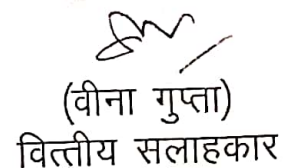 (वीना गुप्ता)
वित्तीय सलाहकार